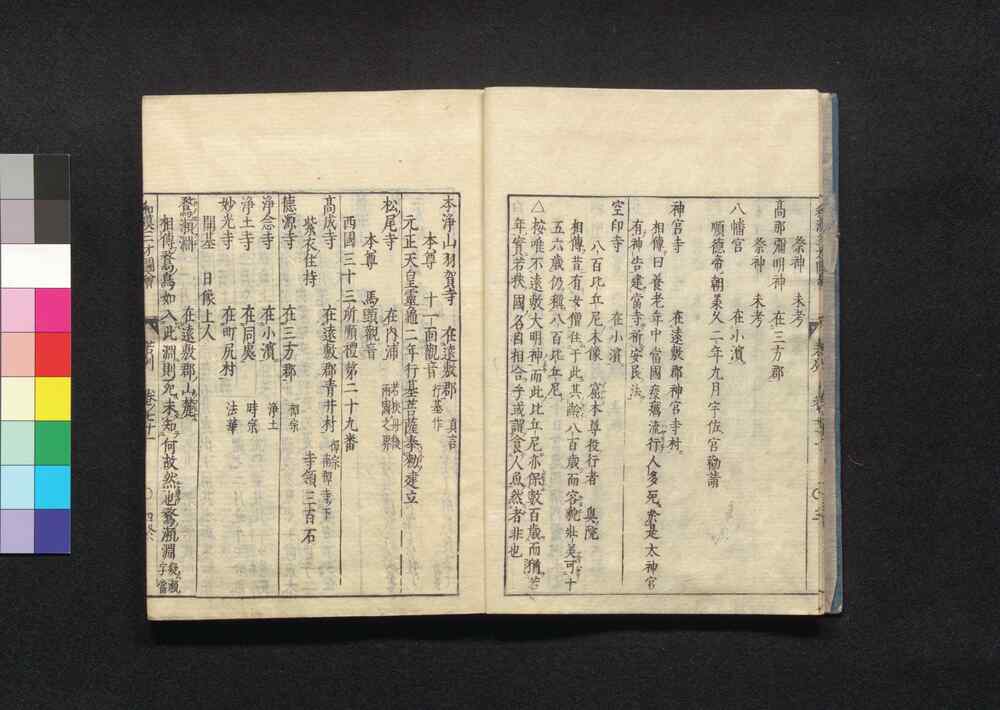 祭神　未考
高那彌明神　在三方郡
祭神　未考
八幡宮　在小濵
順德帝朝承久二年九月宇佐宮勧請
神宮寺　在遠敷郡神宮寺村
相傳曰養老年中當國疫癘流行人多死於是太神宮
有神告建當寺祈安民法
空印寺　在小濵
八百比丘尼木像　窟本尊役行者　奥院
相傳昔有女僧住于此其齢八百歳而容貌壮美可十
五六歳仍稱八百比丘尼
△按唯不遠敷大明神而此比丘尼亦保數百歳而猶若
年實若狭國名自相合乎或謂食人魚然者非也
本浄山羽賀寺　在遠敷郡　真言
本尊　十一面觀音　行基作
元正天皇靈龜二年行基菩薩奉勅建立
松尾寺　在内浦　若狭丹後両國之界
本尊　馬頭觀音
西國三十三所順禮第二十九番
高成寺　在遠敷郡青井村　禅宗
紫衣住持　寺領三百石
德源寺　在三方郡　禅宗
浄念寺　在小濵　浄土
浄土寺　在同處　時宗
妙光寺　在町尻村　法華
開基　日像上人
鵞瀬淵　在遠敷郡山麓
相傳鵞鳥如入此淵則死未知何故然也鵞瀬淵
和漢三才圖會　若州　卷之七十一